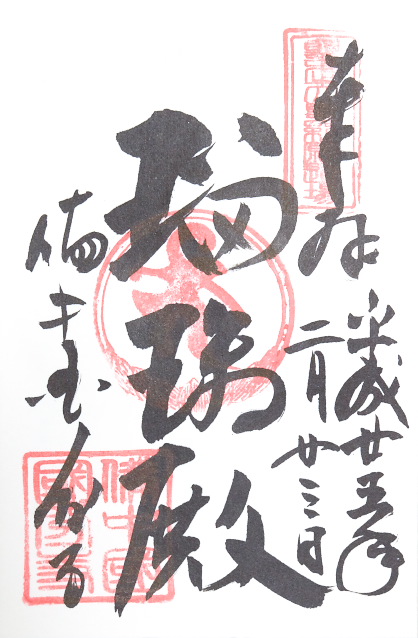 奉拝
平成廿五年
二月廿三日
瑠璃殿
備中国分寺